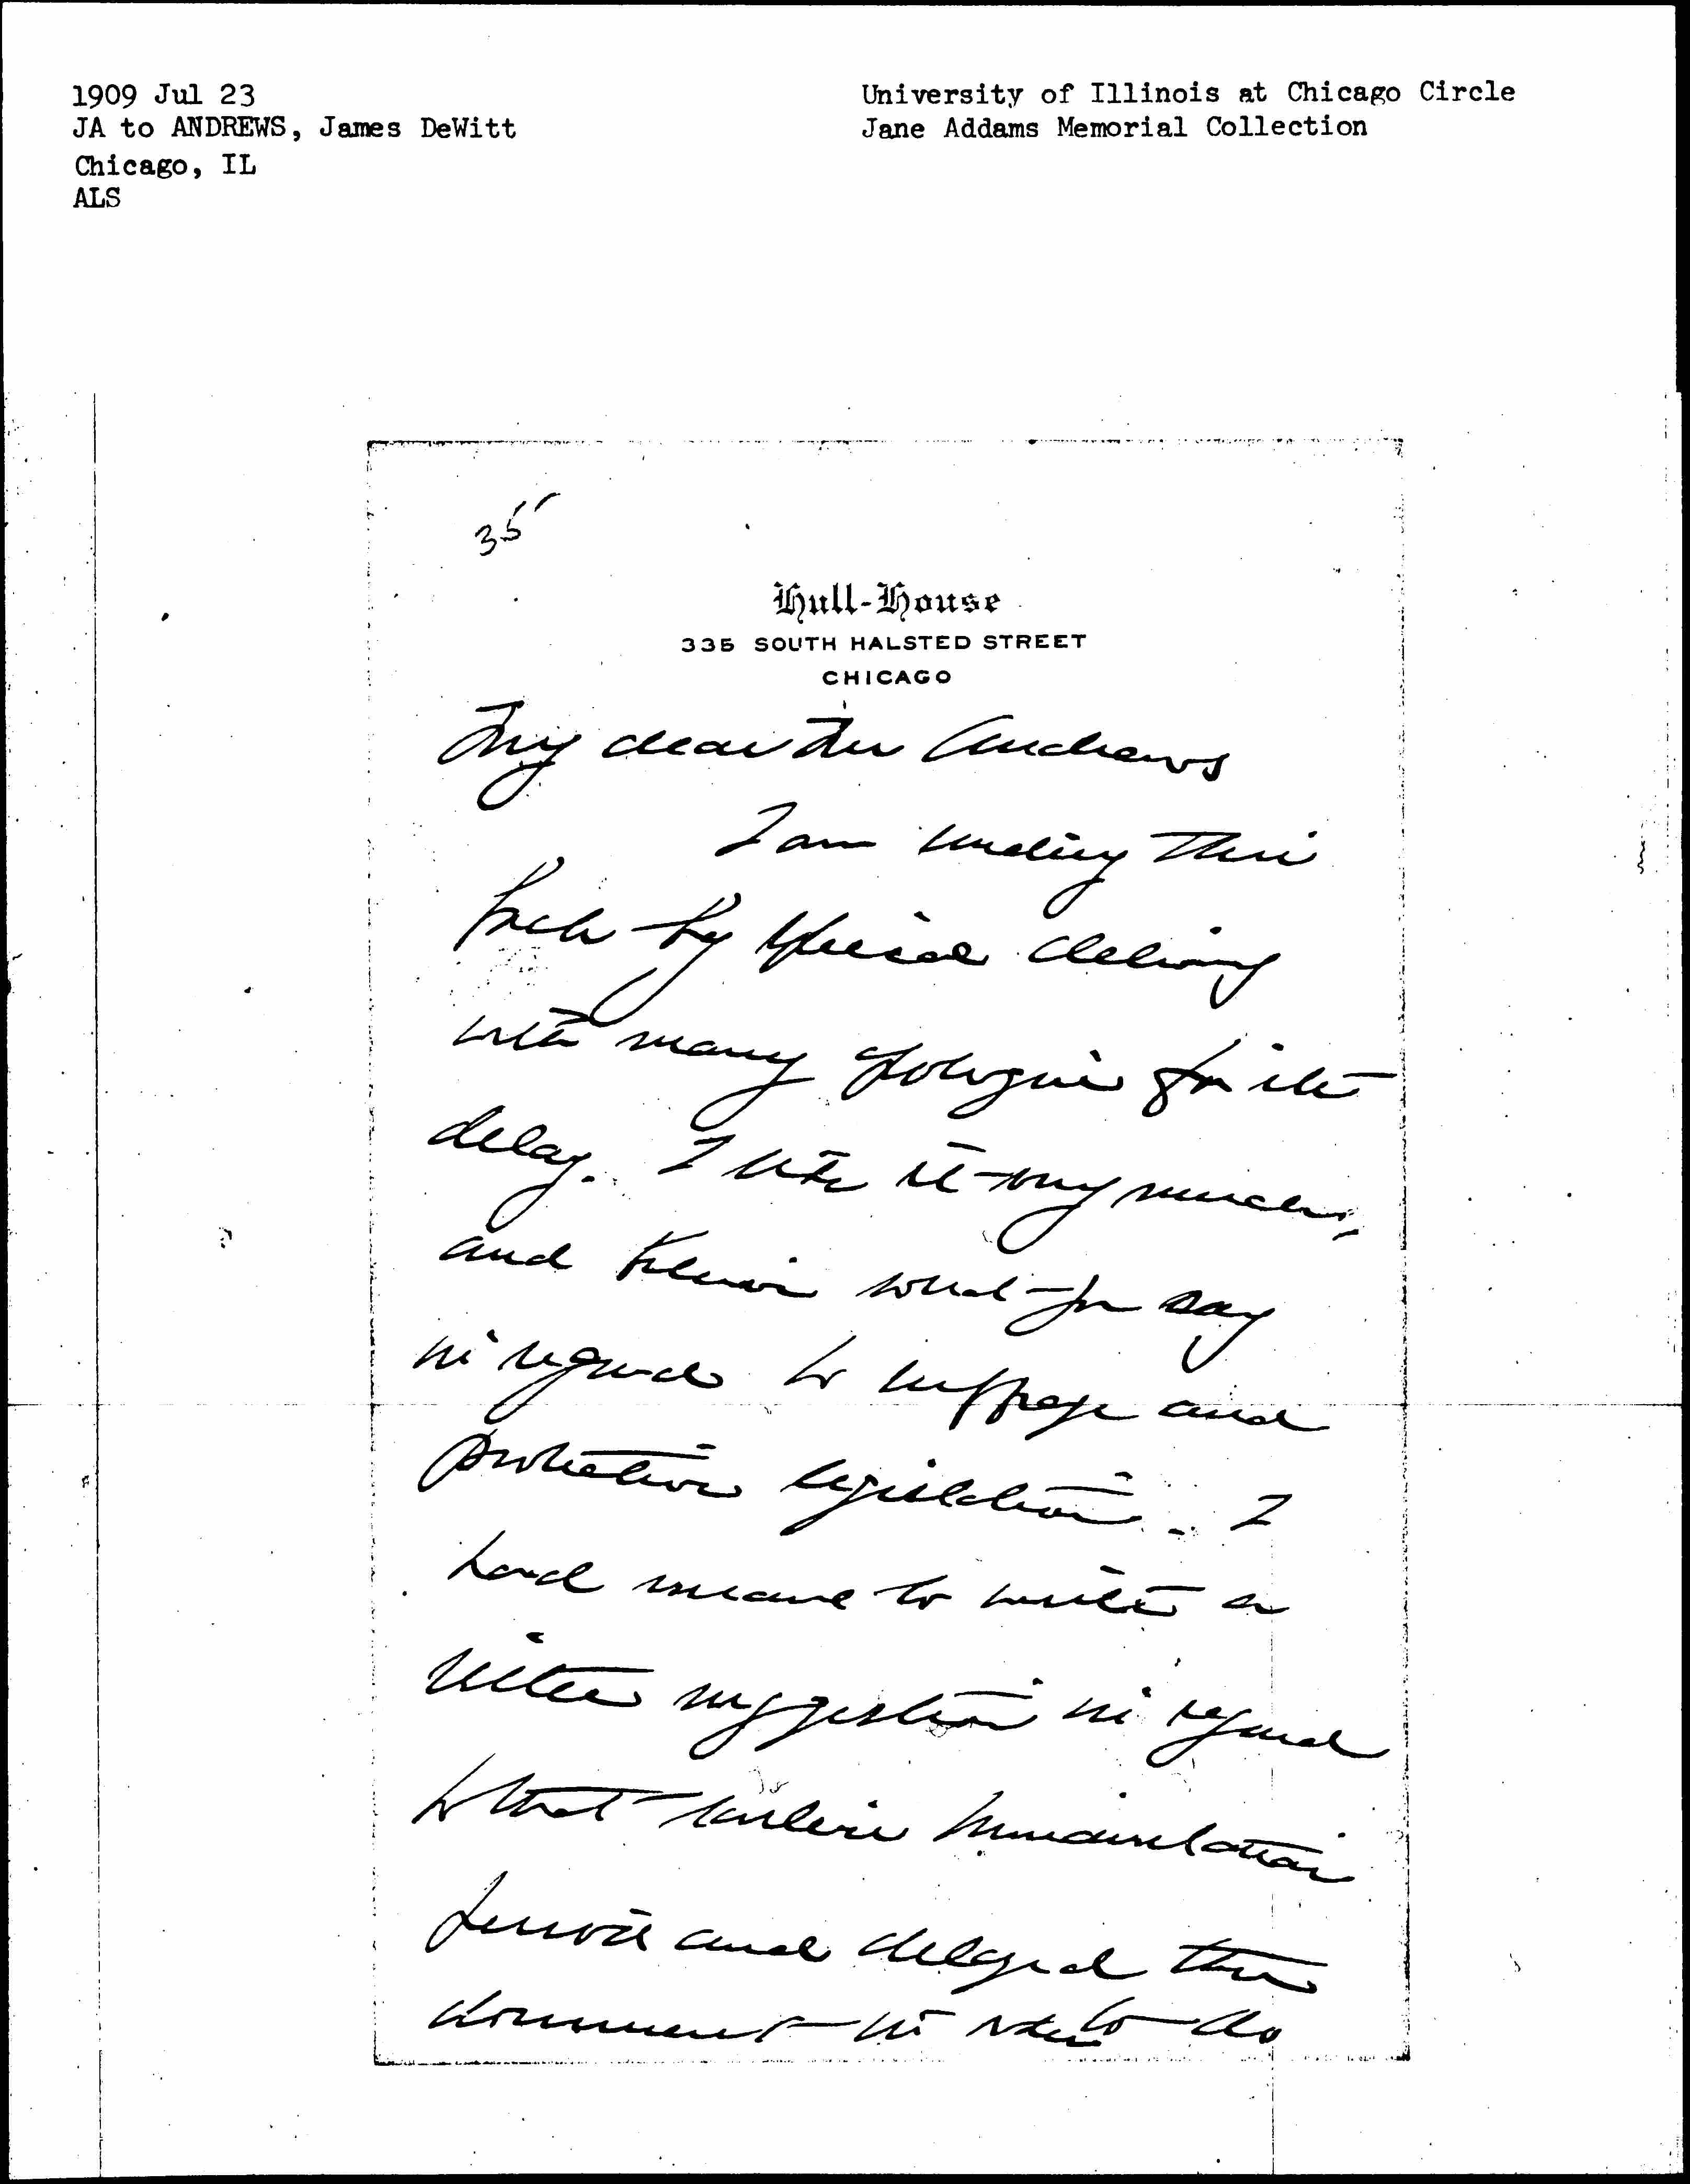 1909 Jul 23
JA to ANDREWS, James DeWitt
Chicago, IL
ALS
University of Illinois at Chicago Circle
Jane Addams Memorial Collection
35
Hull-House
335 SOUTH HALSTED STREET
CHICAGO
My dear Mr Andrews
I am sending this
back by special delivery
with many apologies for its
delay. I like it very much,
and what you say
in regard to suffrage and
protective legislation. I
had meant to write a
better suggestion in regard
to that
and delayed the
document in order to do